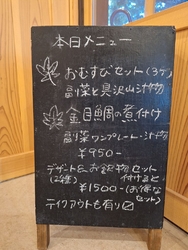 本日メニュー
おむすびセット(3ケ)
副菜と具沢山汁付
金目鯛の煮付け
副菜ワンプレート汁付
¥950-
デザート&お飲物セット
(2種) 付けると
¥1500-(お得なセット)
テイクアウトも有り